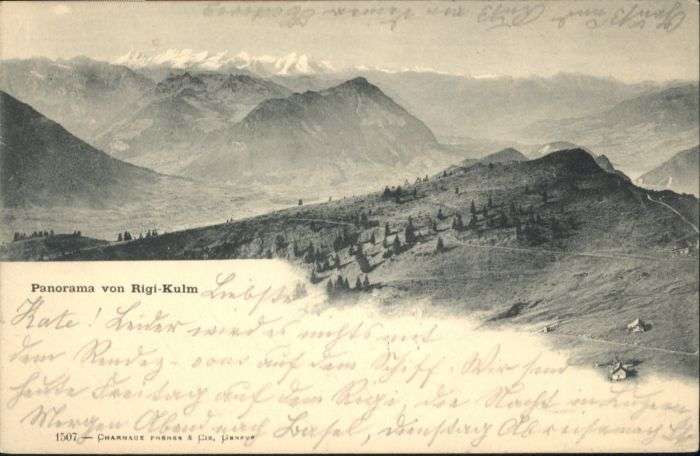 Panorama von Rigi-Kulm
Liebste
Kate! Leider wird es nichts mit
dem Rendez-vous auf dem Schiff. Wir sind
heute Freitag auf dem Rigi, die Nacht in Luzern
Morgen Abend nach Basel, Dienstag Abreise nach
1507 — CHARNAUX FRÈRES & CIE, GENÈVE